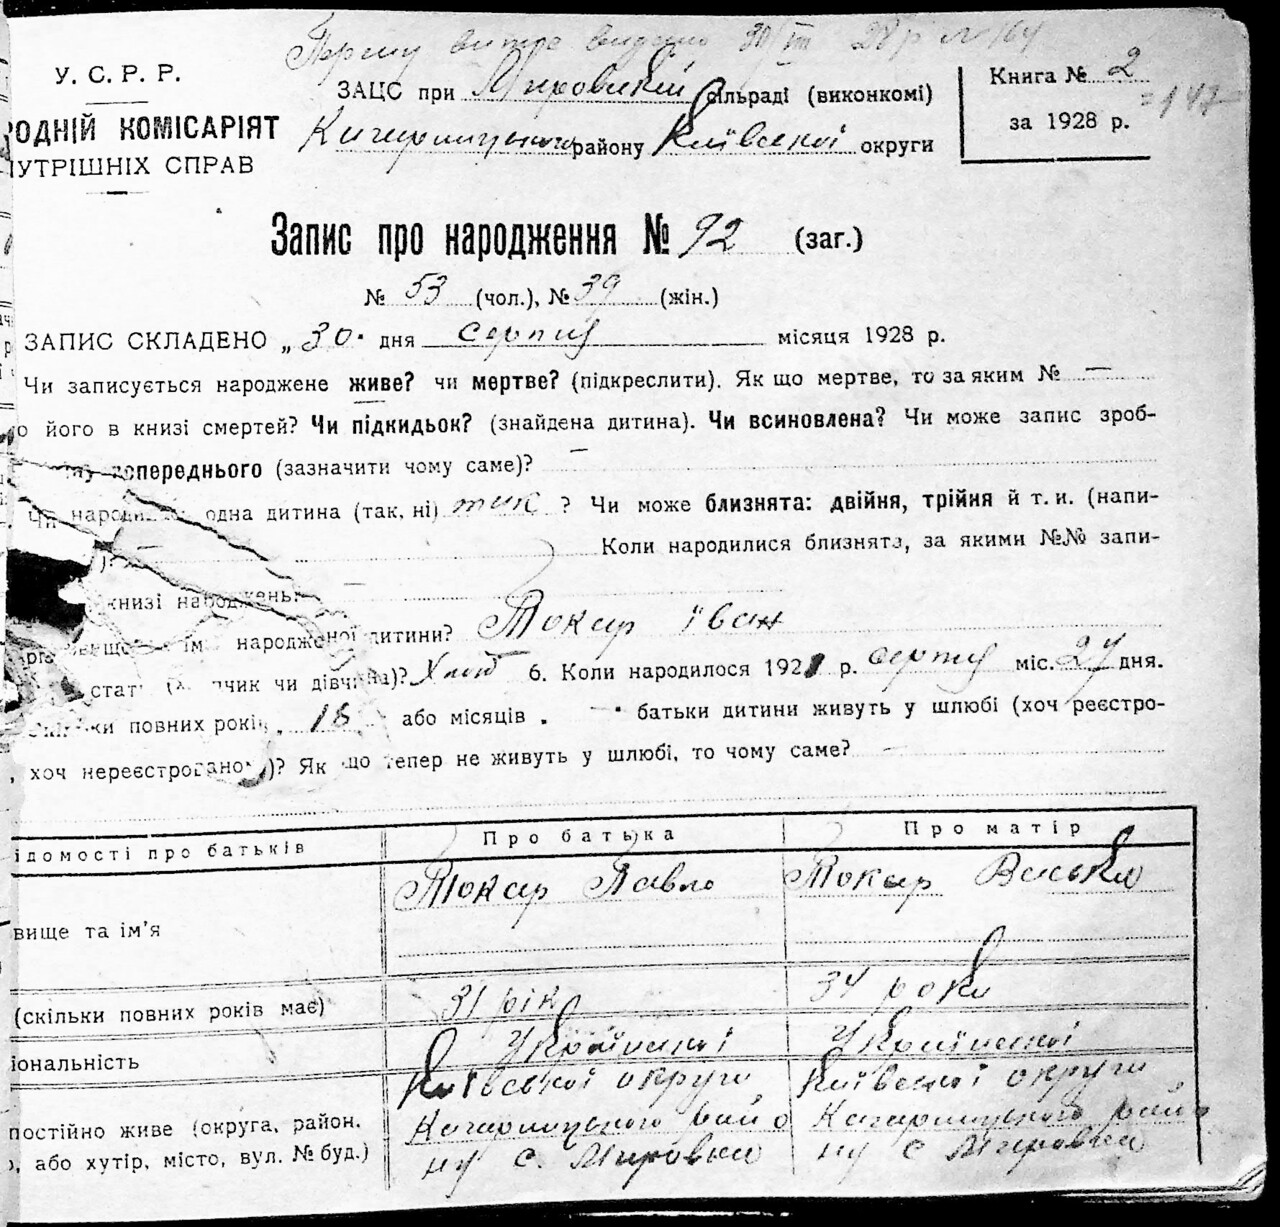 Першу випис видано 30/VIII 28 р № 164
У. С. Р. Р.
РОДНІЙ КОМІСАРІЯТ
НУТРІШНІХ СПРАВ
ЗАЦС при Мировській сільраді (виконкомі)
Кагарлицького району Київської округи
Книга № 2
=147
за 1928 р.
Запис про народження № 92 (заг.)
№ 53 (чол.), № 39 (жін.)
ЗАПИС СКЛАДЕНО „ 30 · дня серпня місяця 1928 р.
Чи записується народжене живе? чи мертве? (підкреслити). Як що мертве, то за яким № —
о його в книзі смертей? Чи підкидьок? (знайдена дитина). Чи всиновлена? Чи може запис зроб-
попереднього (зазначити чому саме)? —
Чи народи одна дитина (так, ні) так ? Чи може близнята: двійня, трійня й т. и. (напи-
): — Коли народилися близнята, за якими №№ запи-
книзі народжень? —
вище ім народженої дитини? Токар Іван
стать (х пчик чи дівчина)? Хлоп 6. Коли народилося 1928 р. серпня міс. 27 дня.
ки повних років, 18 або місяців . — батьки дитини живуть у шлюбі (хоч реєстро-
, хоч нереєстрованому)? Як що тепер не живуть у шлюбі, то чому саме? —
ідомості про батьків
Про батька
Про матір
вище та ім'я
Токар Павло
Токар Васька
(скільки повних років має)
31 рік
34 роки
іональність
Української
Української
постійно живе (округа, район,
, або хутір, місто, вул. № буд.)
Київської округи
Кагарлицького райо
ну с. Мировка
Київської округи
Кагарлицького райо
ну с Мировка